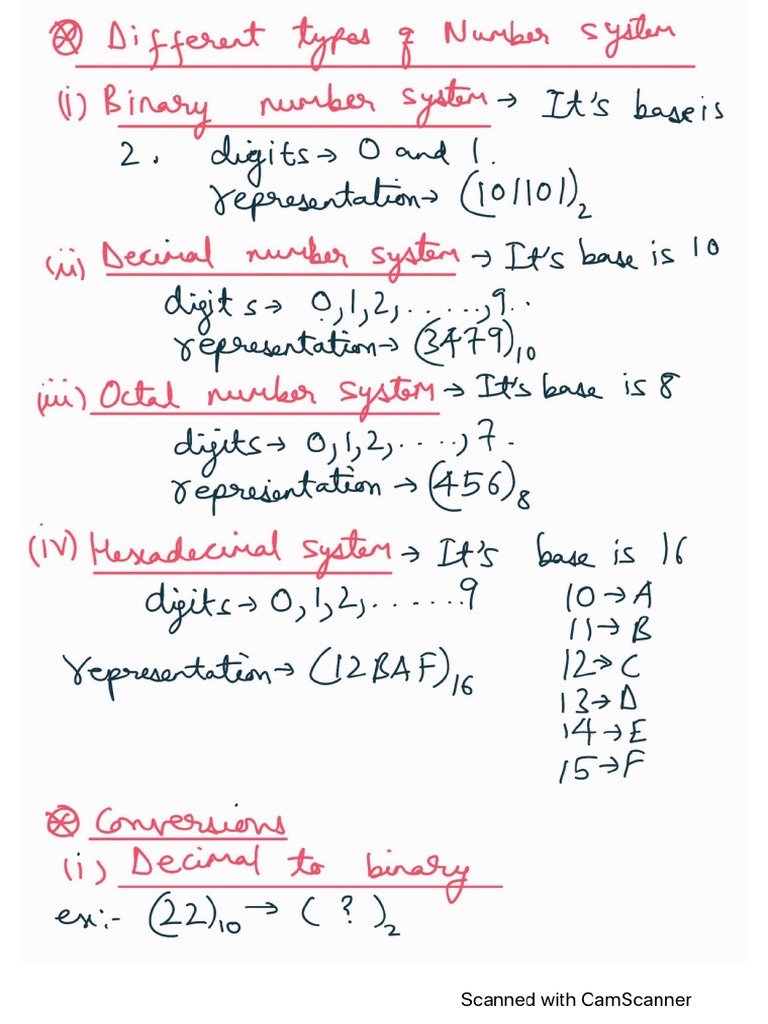 ⊛ Different types of Number system
(i) Binary number system → It's base is
2. digits → 0 and 1.
representation → (101101)₂
(ii) Decimal number system → It's base is 10
digits → 0,1,2,.....,9..
representation → (3479)₁₀
(iii) Octal number system → It's base is 8
digits → 0,1,2,....,7.
representation → (456)₈
(iv) Hexadecimal system → It's base is 16
digits → 0,1,2,......9
10 → A
11 → B
representation → (12BAF)₁₆
12 → C
13 → D
14 → E
15 → F
⊛ Conversions
(i) Decimal to binary
ex:- (22)₁₀ → ( ? )₂
Scanned with CamScanner